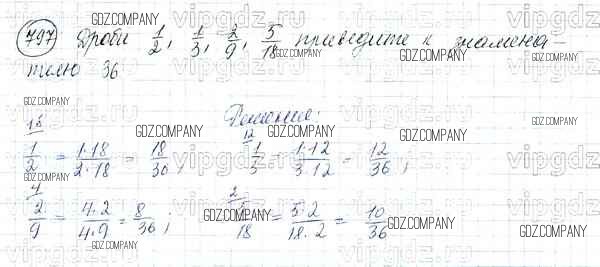 797 Дроби 1/2, 1/3, 2/9, 5/18 приведите к знамена-
телю 36
Решение:
18 12
1/2 = 1·18/2·18 = 18/36; 1/3 = 1·12/3·12 = 12/36;
4 2
2/9 = 4·2/4·9 = 8/36; 5/18 = 5·2/18·2 = 10/36
vipgdz.ru
GDZ.COMPANY